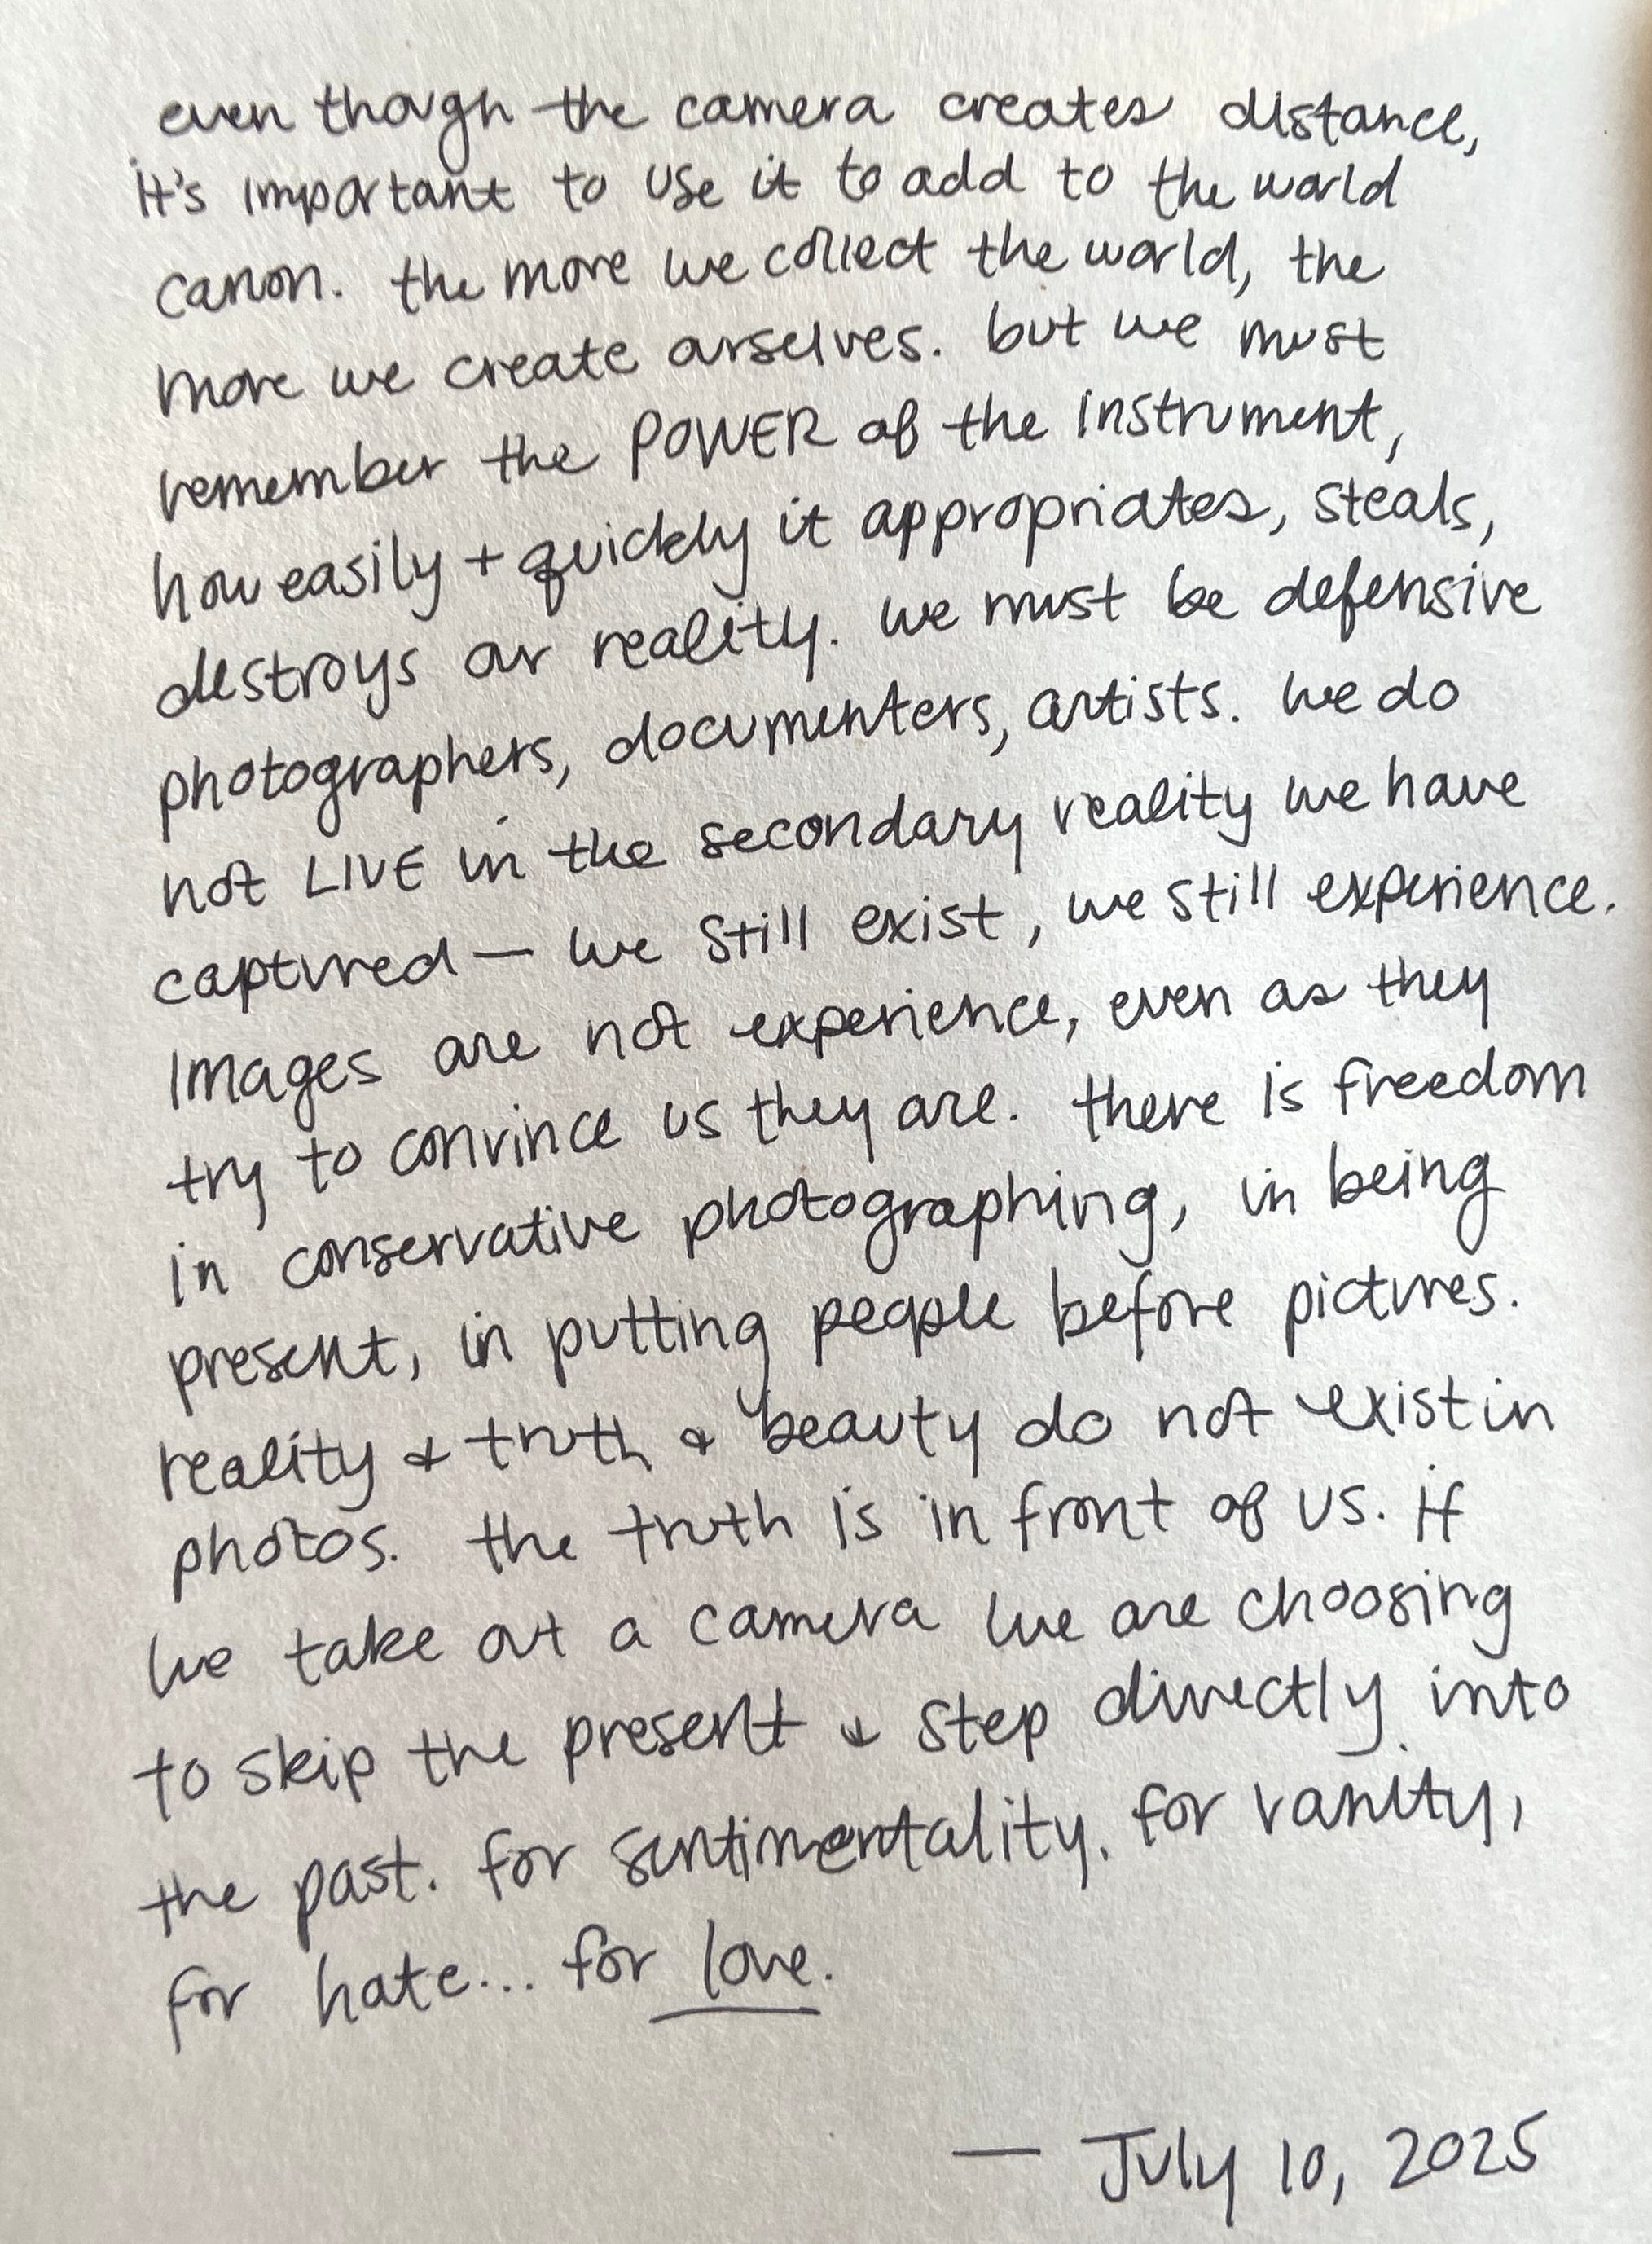 even though the camera creates distance,
it's important to use it to add to the world
canon. the more we collect the world, the
more we create ourselves. but we must
remember the POWER of the instrument,
how easily + quickly it appropriates, steals,
destroys our reality. we must be defensive
photographers, documenters, artists. we do
not LIVE in the secondary reality we have
captured — we still exist, we still experience.
Images are not experience, even as they
try to convince us they are. there is freedom
in conservative photographing, in being
present, in putting people before pictures.
reality & truth & beauty do not exist in
photos. the truth is in front of us. if
we take out a camera we are choosing
to skip the present & step directly into
the past. for sentimentality. for vanity,
for hate... for love.
— July 10, 2025